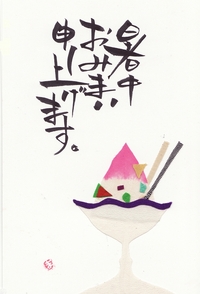 暑中
おみまい
申し上げます。